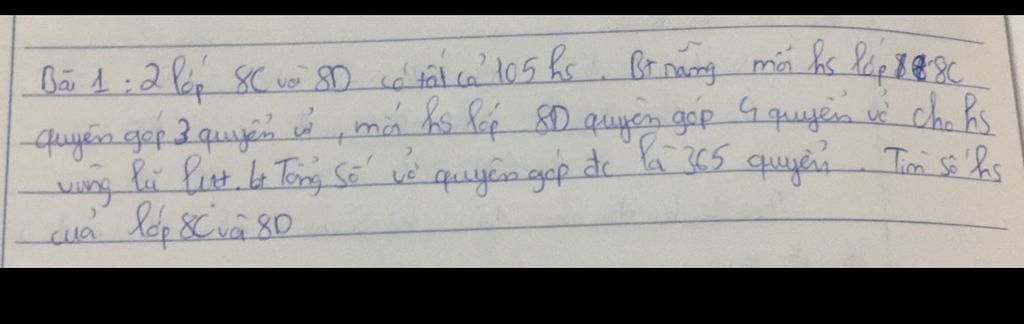 Bài 1 : 2 lớp 8C và 8D có tất cả 105 hs . Bt rằng mỗi hs lớp 8C
quyên góp 3 quyển vở , mỗi hs lớp 8D quyên góp 4 quyển vở cho hs
vùng lũ lụt. bt Tổng số vở quyên góp đc là 365 quyển . Tìm số hs
của lớp 8C và 8D